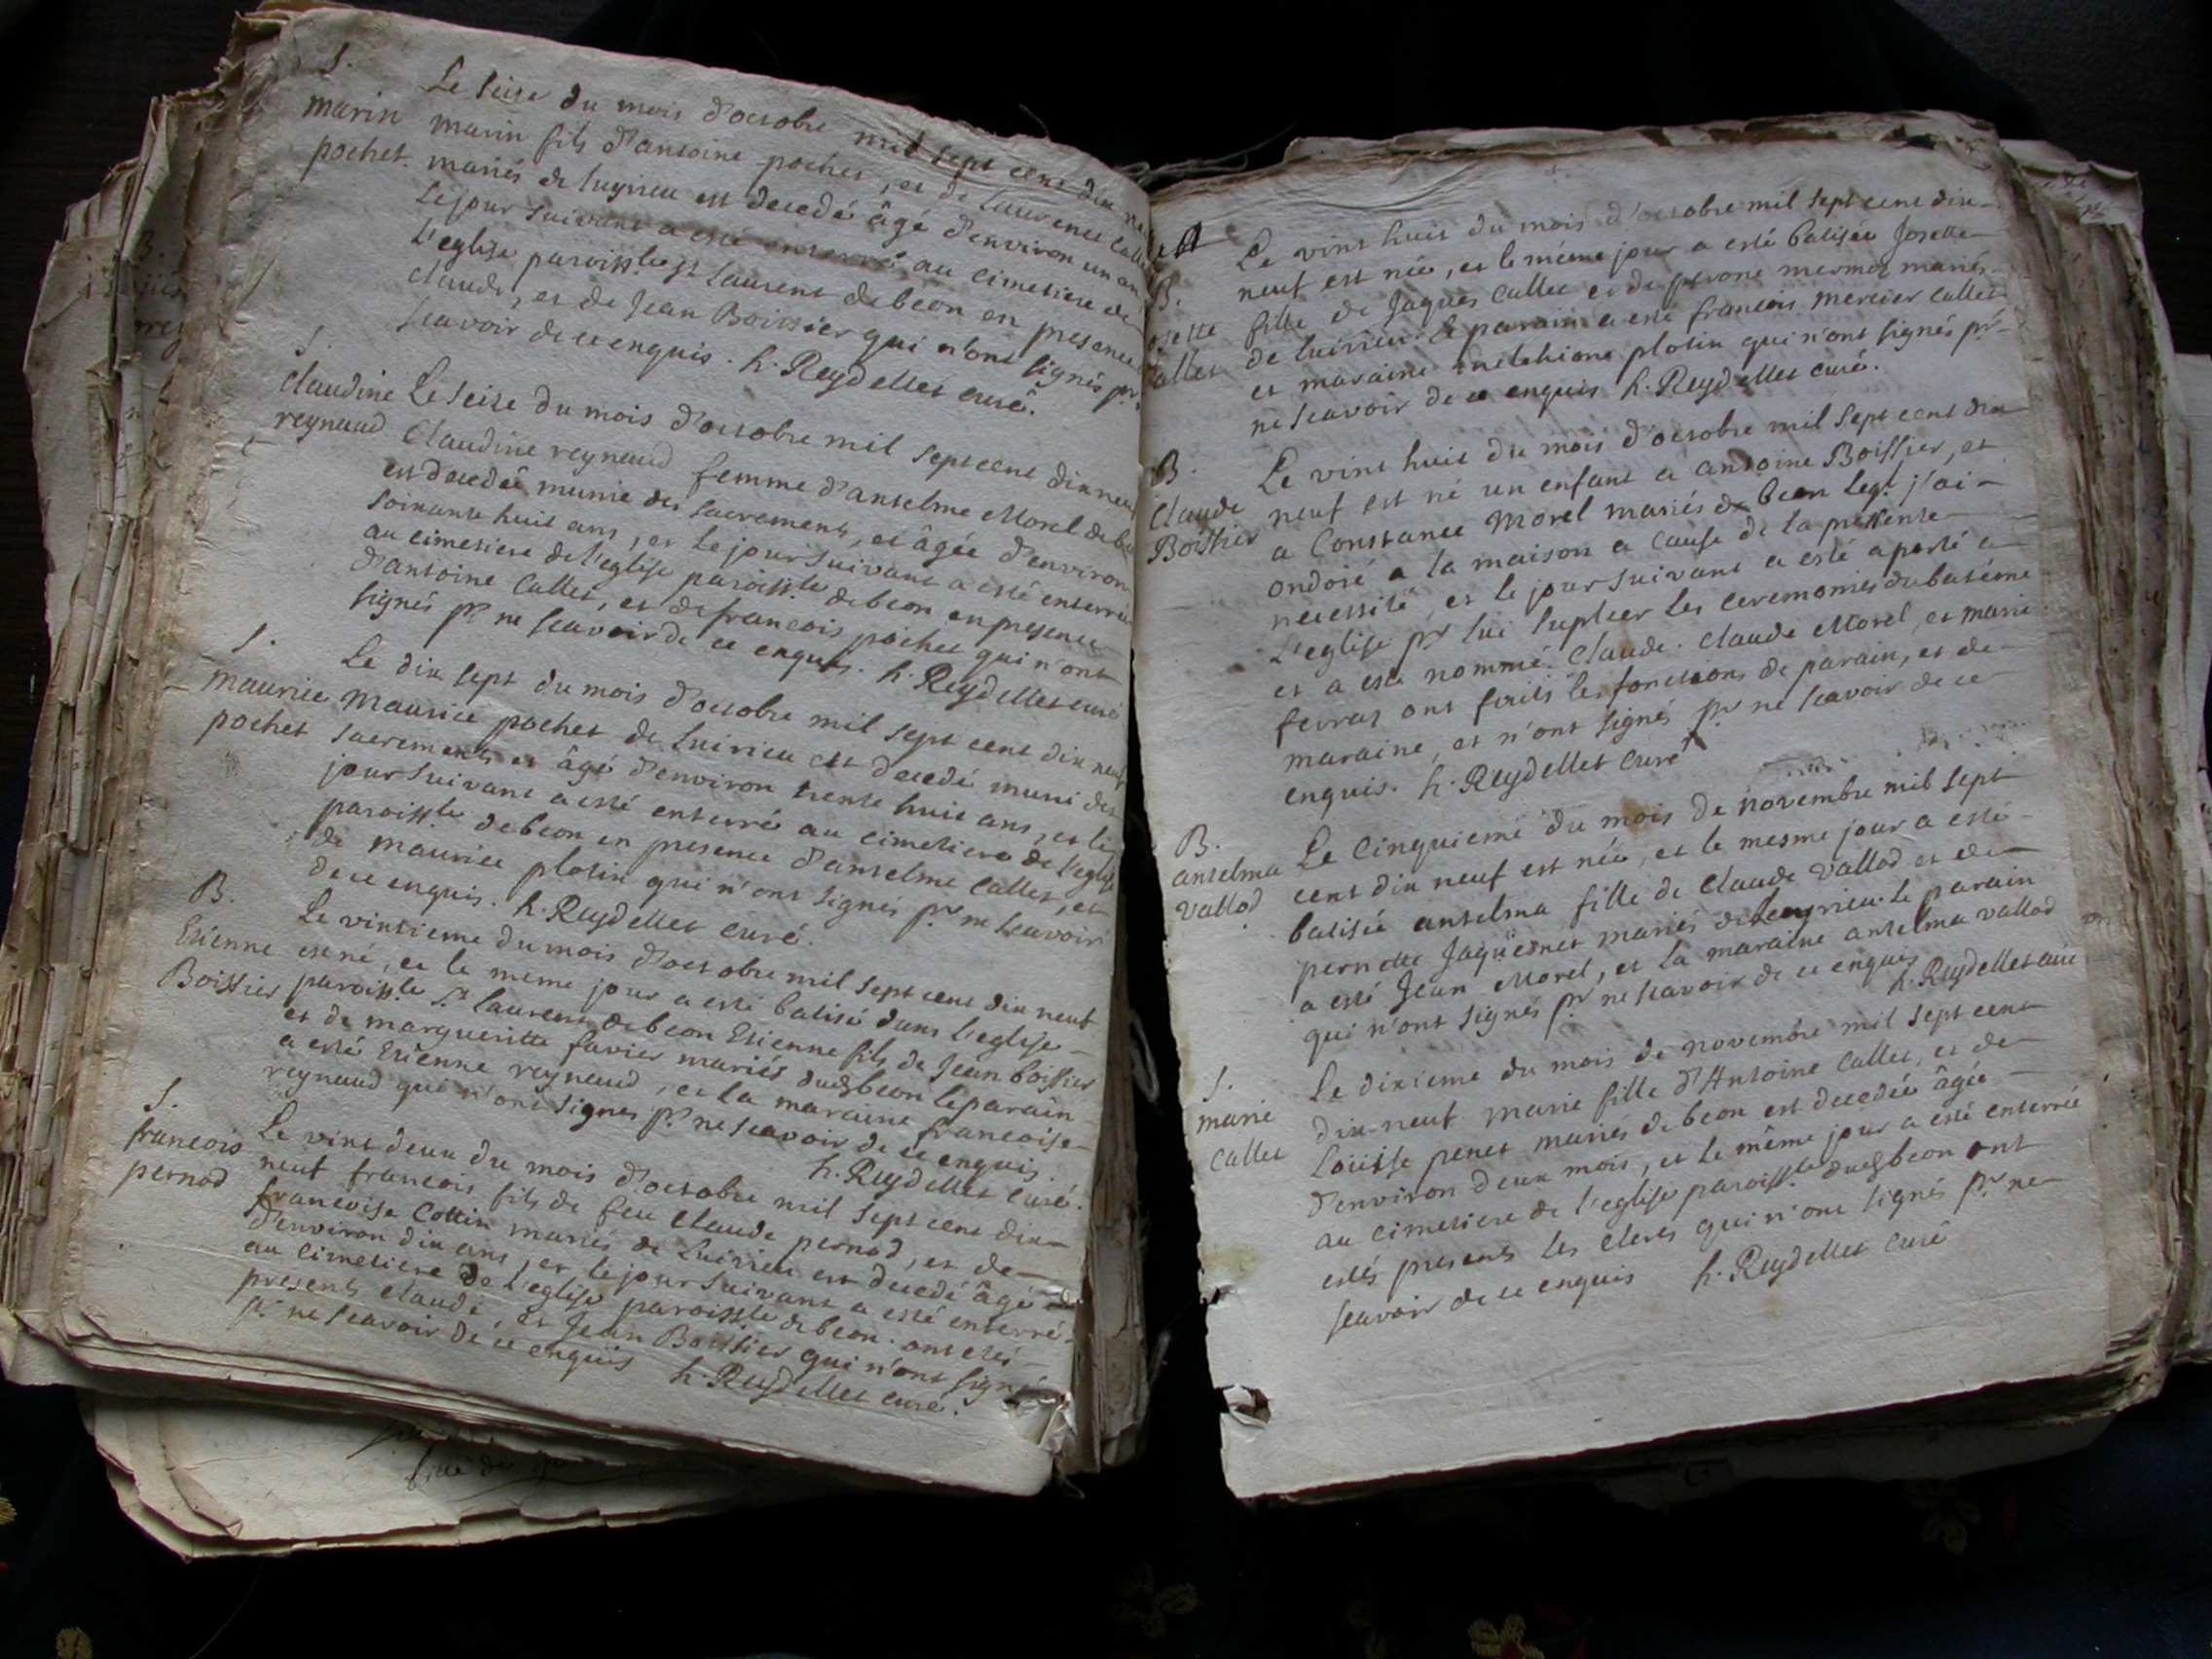 S.
Le seise du mois d'octobre mil sept cent dix
marin marin fils d'antoine pochet, et de Laurence
pochet. mariés de luyrieu est decedé âgé d'environ un an
Le jour suivant a esté enterré au cimetiere de
L'eglise paroissle st Laurent de beon en presence
claude, et de Jean Boissier qui n'ont signés pr.
scavoir de ce enquis. h. Reydellet curé.
S.
Claudine Le seise du mois d'octobre mil sept cent dix neuf
reynaud Claudine reynaud femme d'anselme Morel de
est decedée munie des sacrements, et âgée d'environ
soixante huit ans, et le jour suivant a esté enterrée
au cimetiere de l'eglise paroissle de beon en presence
d'antoine Callet, et de francois pochet qui n'ont
signés pr ne scavoir de ce enquis. h. Reydellet curé
S.
Le dix sept du mois d'octobre mil sept cent dix neuf
maurice maurice pochet de luirieu est decedé muni des
pochet sacrements et âgé d'environ trente huit ans, et le
jour suivant a esté enterré au cimetiere de l'eglise
paroissle de beon en presence d'anselme Callet, et
de maurice plotin qui n'ont signés pr ne scavoir
de ce enquis. h. Reydellet curé.
B.
Le vintieme du mois d'octobre mil sept cent dix neuf
Etienne est né, et le meme jour a esté batisé dans l'eglise
Boissier paroissle St laurent de beon Etienne fils de Jean boissier
et de margueritte favier mariés dudt beon le parain
a esté Etienne reynaud, et la maraine francoise
reynaud qui n'ont signes pr. ne scavoir de ce enquis.
h. Reydellet curé.
S.
Le vint deux du mois d'octobre mil sept cent dix
francois neuf francois fils de feu Claude pernod, et de
pernod francoise Cottin mariés de Luirieu est decedé âgé
d'environ dix ans, et le jour suivant a esté enterré
au cimetiere de l'eglise paroissle de beon. ont estés
presents claude, et Jean Boissier qui n'ont signés
pr. ne scavoir de ce enquis h. Reydellet curé.
Le vint huit du mois d'octobre mil sept cent dix
B. neuf est née, et le méme jour a esté batisée Josette
osette fille de Jaques Callet et de perone mermet mariés
allet de luirieu. le parain a esté francois mercier callet
et maraine melchione plotin qui n'ont signés pr
ne scavoir de ce enquis h. Reydellet curé.
B.
Le vint huit du mois d'octobre mil sept cent dix
Claude neuf est né un enfant a antoine Boissier, et
Boissier a Constance Morel mariés de beon leql j'ai
ondoié a la maison a cause de la pressente
necessité, et le jour suivant a esté aporté a
L'eglise pr lui supleer les ceremonies du batéme
et a esté nommé Claude. Claude Morel, et marie
ferraz ont faits les fonctions de parain, et de
maraine, et n'ont signés pr ne scavoir de ce
enquis. h. Reydellet Curé
B.
Le Cinquieme du mois de novembre mil sept
anselma cent dix neuf est née, et le mesme jour a esté
vallod batisée anselma fille de Claude vallod et de
pernette Jaquemet mariés de le parain
a esté Jean Morel, et la maraine anselma vallod
qui n'ont signés pr ne scavoir de ce enquis
h. Reydellet curé
S.
Le dixieme du mois de novembre mil sept cent
marie dix-neuf marie fille d'Antoine Callet, et de
Callet Loüise penet mariés de beon est decedée âgée
d'environ deux mois, et le même jour a esté enterrée
au cimetiere de l'eglise paroissle dudt beon ont
estés presents les clercs qui n'ont signés pr ne
scavoir de ce enquis h. Reydellet curé